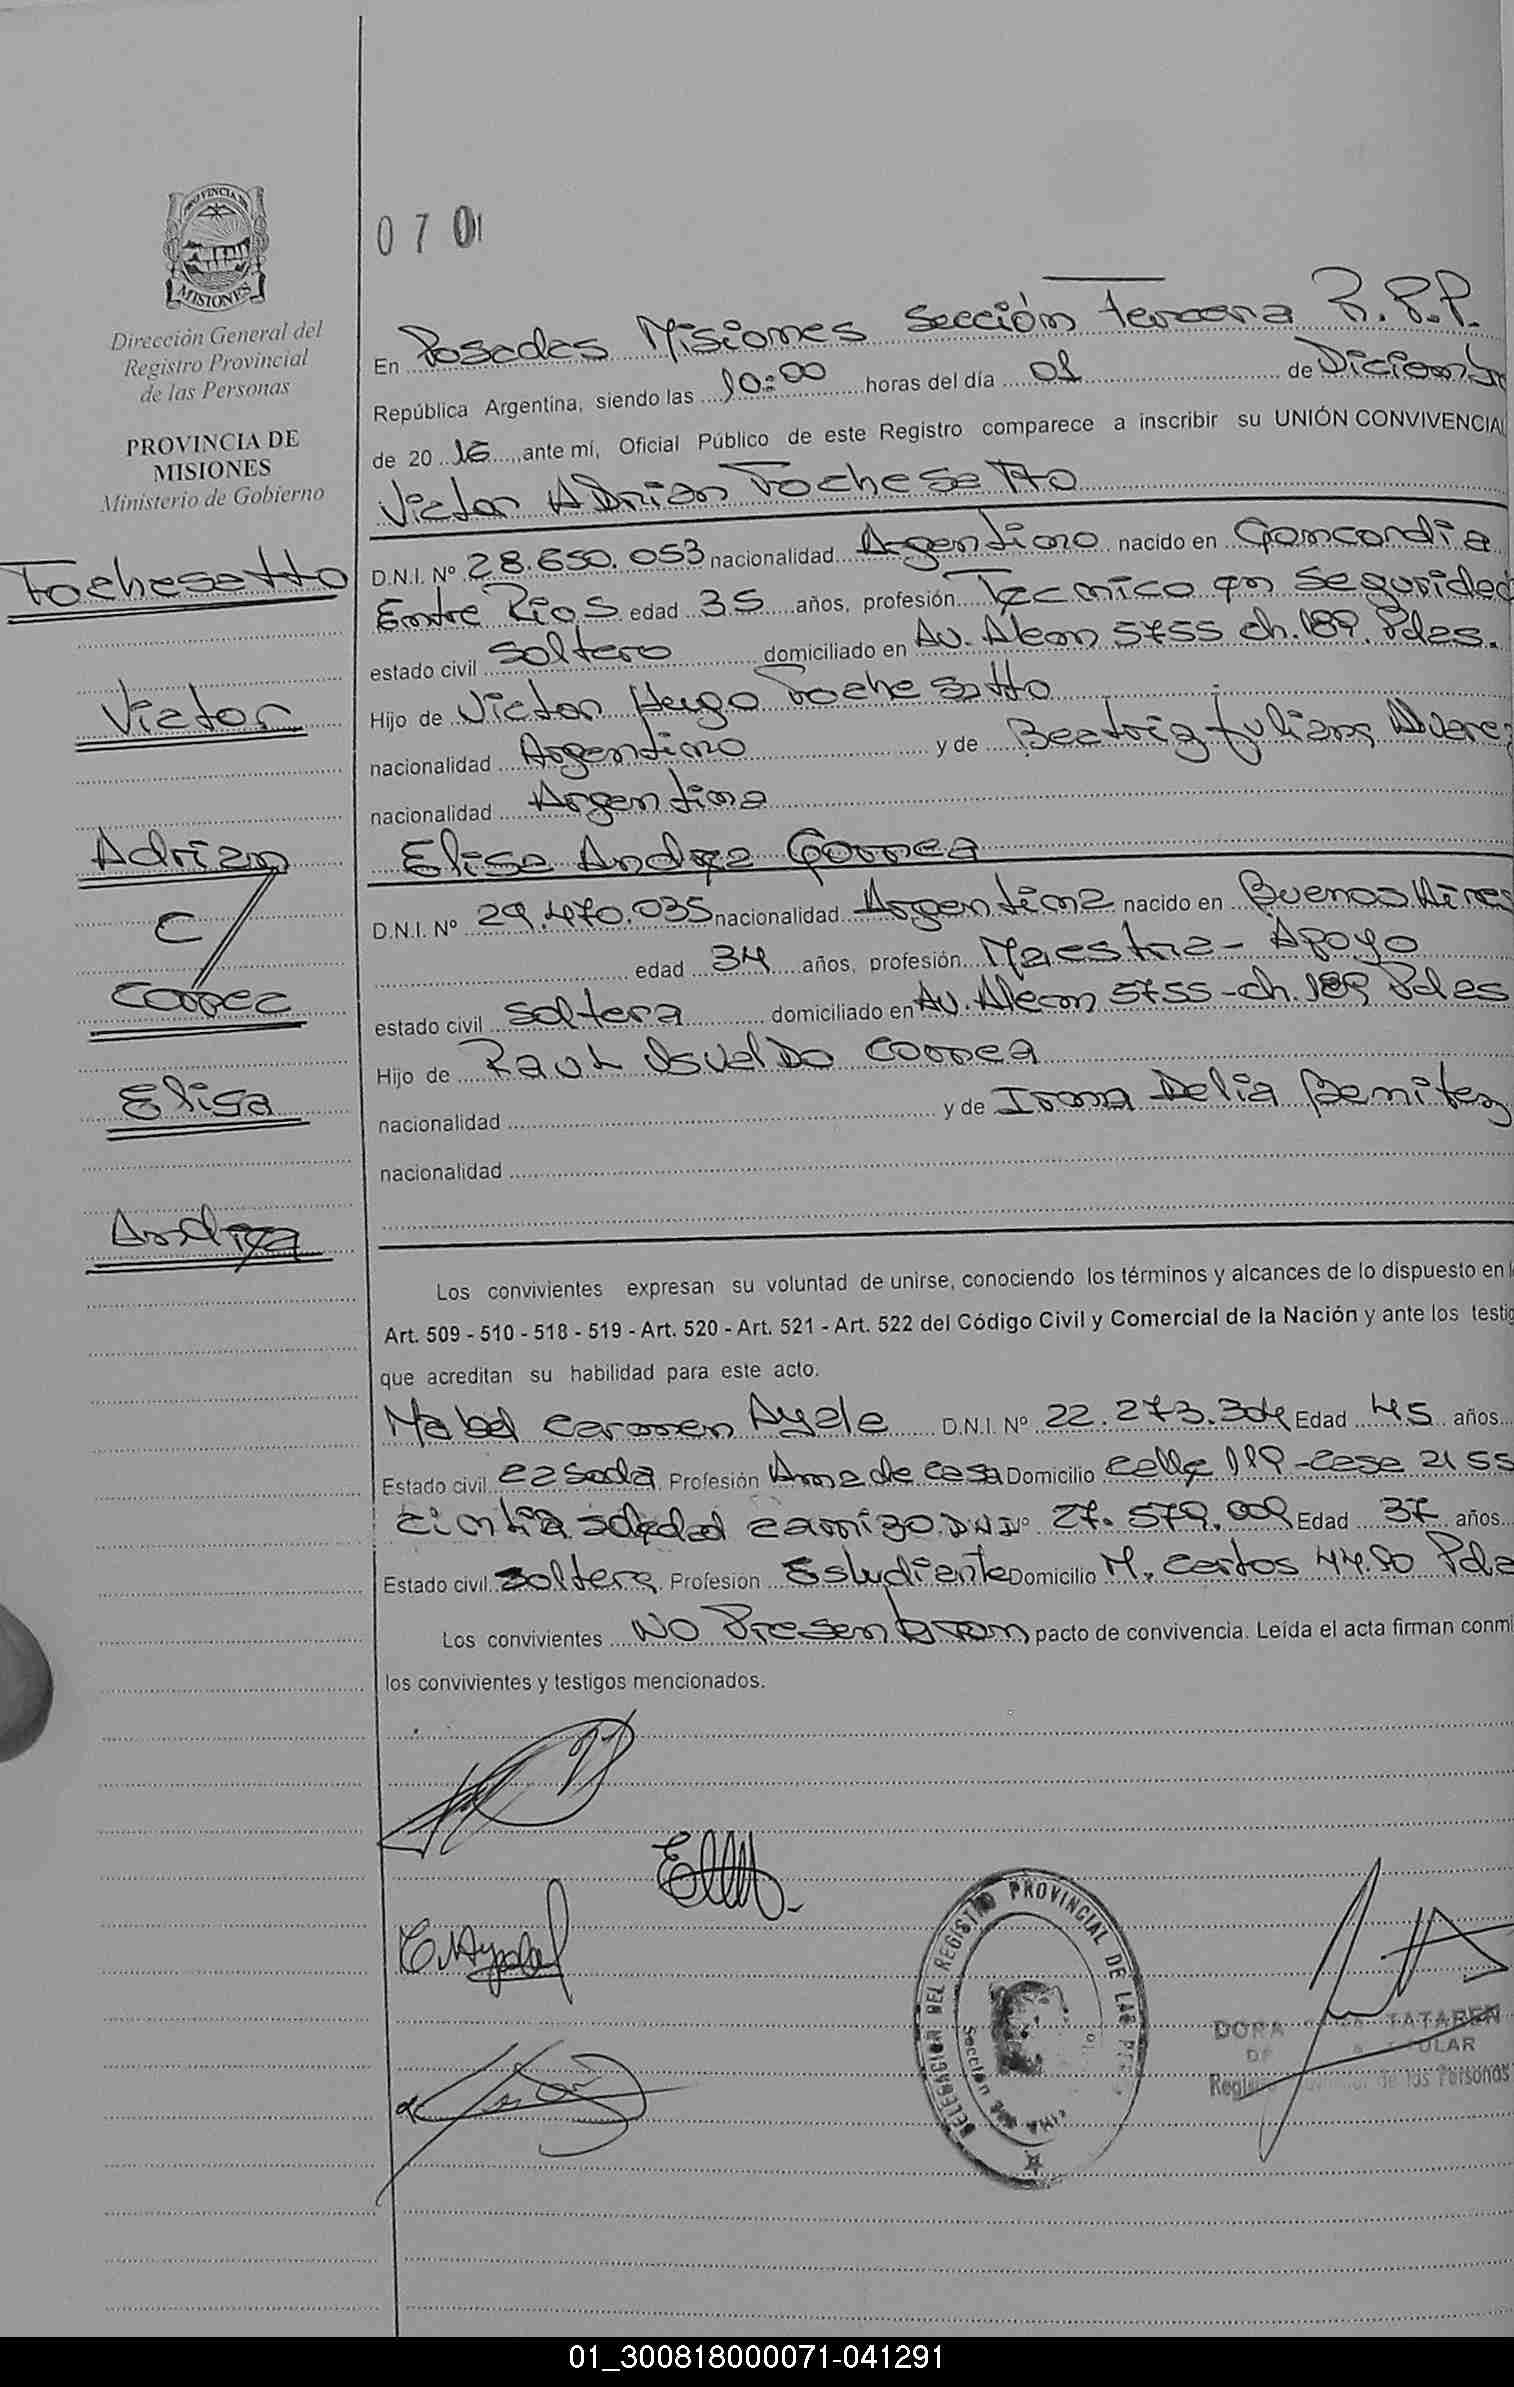 PROVINCIA DE
MISIONES
Dirección General del
Registro Provincial
de las Personas
PROVINCIA DE
MISIONES
Ministerio de Gobierno
Tochesetto
Victor
Adrian
C/
Correa
Elisa
Andrea
070
En Posadas Misiones Sección Tercera R.P.P.
República Argentina, siendo las 10:00 horas del día 01 de Diciembre
de 20 16, ante mi, Oficial Público de este Registro comparece a inscribir su UNIÓN CONVIVENCIAL
Victor Adrian Tochesetto
D.N.I. Nº 28.650.053 nacionalidad Argentino nacido en Concordia
Entre Rios edad 35 años, profesión Tecnico en Seguridad
estado civil Soltero domiciliado en Av. Alem 5755 ch. 189. Pdas.
Hijo de Victor Hugo Tochesetto
nacionalidad Argentino y de Beatriz Juliana Alvarez
nacionalidad Argentina
Elisa Andrea Correa
D.N.I. Nº 29.470.035 nacionalidad Argentina nacido en Buenos Aires
edad 34 años, profesión Maestra - Apoyo
estado civil Soltera domiciliado en Av. Alem 5755 - ch. 189 Pdas
Hijo de Raul Osvaldo Correa
nacionalidad y de Irma Delia Benitez
nacionalidad
Los convivientes expresan su voluntad de unirse, conociendo los términos y alcances de lo dispuesto en l
Art. 509 - 510 - 518 - 519 - Art. 520 - Art. 521 - Art. 522 del Código Civil y Comercial de la Nación y ante los testig
que acreditan su habilidad para este acto.
Mabel Carmen Ayala D.N.I. Nº 22.273.304 Edad 45 años
Estado civil Casada Profesión Ama de Casa Domicilio Calle 119 - Casa 2155
Cintia Soledad Carrizo D.N.I Nº 27.579.009 Edad 37 años
Estado civil Soltera Profesion Estudiante Domicilio M. Cestos 44.90 Pda
Los convivientes No Presentaron pacto de convivencia. Leída el acta firman conmi
los convivientes y testigos mencionados.
DELEGACION DEL REGISTRO PROVINCIAL DE LAS
Sección
DORA TATAREN
TITULAR
Registro Provincial de las Personas
01_300818000071-041291